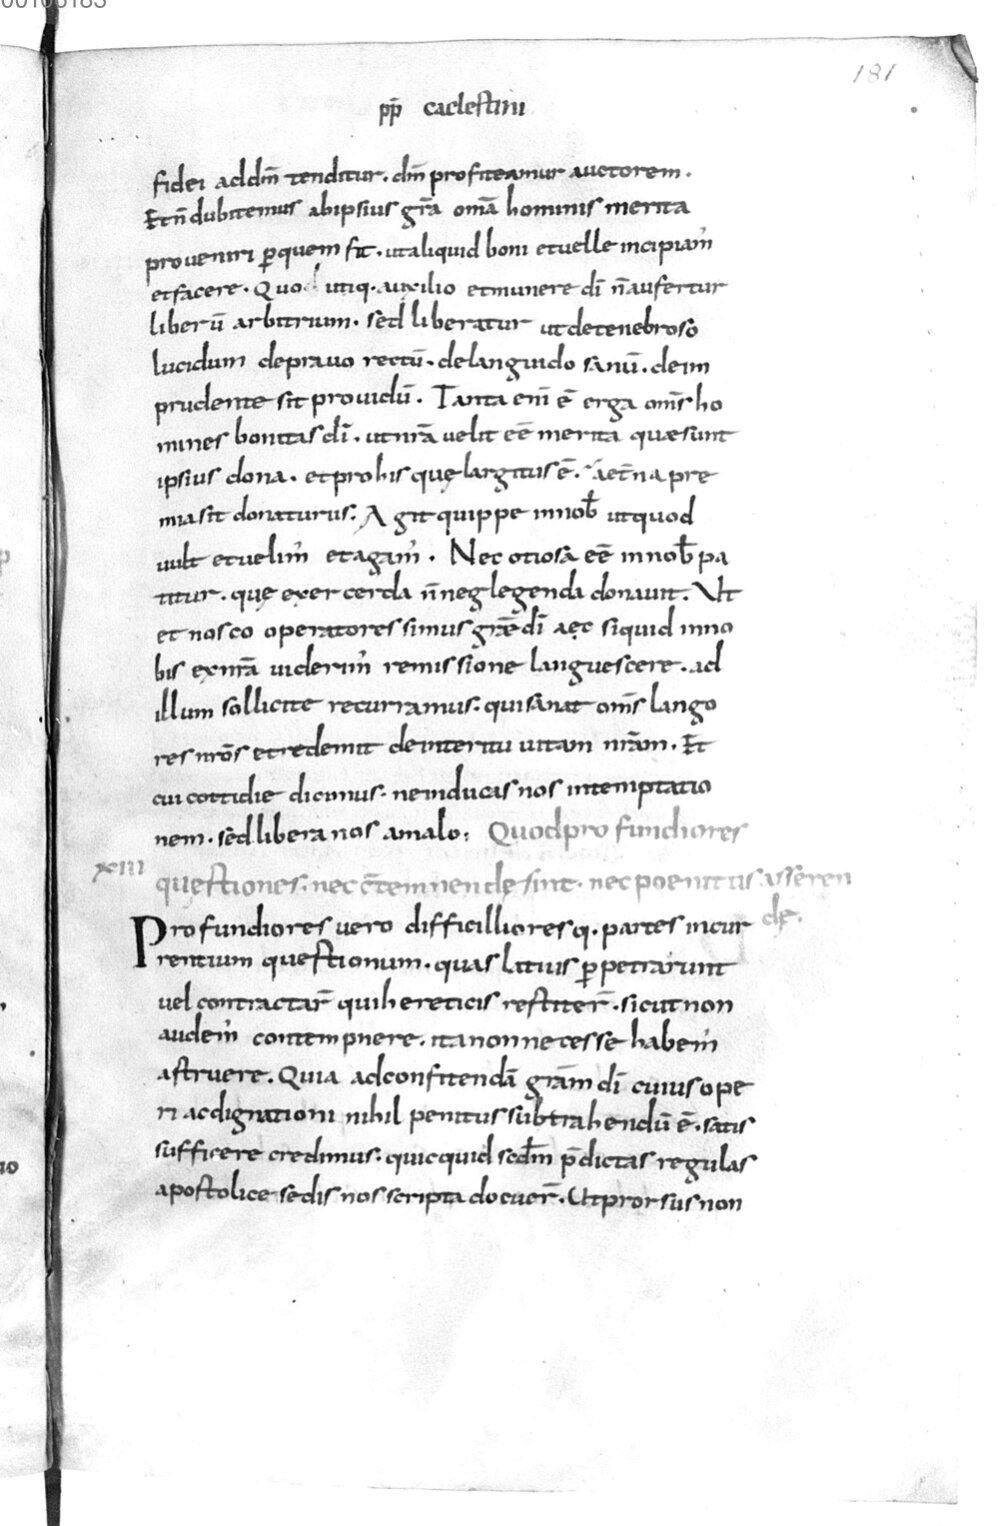 181
pp̄ caelestini
fidei addm̄ tenditur. dm̄ profiteamur auctorem.
Et n̄ dubitemus abipsius gr̄a om̄a hominis merita
proveniri ꝑquem fit. utaliquid boni etuelle incipiam᾽
etfacere. Quod utiq. auxilio etmunere dī n̄aufertur
liberū arbitrium. sed liberatur utdetenebroso
lucidum depravo rectū. delanguido sanū. deim
prudente sit providū. Tanta enī ē erga om̄s ho
mines bonitas dī. utnr̄a uelit eē merita quæsunt
ipsius dona. etprohis quę largitus ē. aet̄na pre
miasit donaturus. Agit quippe innob̄ utquod
uult etuelim᾽ etagam᾽. Nec otiosa eē innob̄ pa
titur. quę exercerda n̄neglegenda donauit. Ut
et nosco operatores simus gr̄æ dī aec siquid inno
bis exnr̄a uiderim᾽ remissione languescere. ad
illum sollicite recurramus. quisanat om̄s lango
res nr̄os etredemit deinteritu uitam nr̄am. Et
cui cottidie dicimus. neinducas nos intemptatio
nem. sed libera nos amalo; Quodprofundiores
xiii questiones. nec c̄temnendę sint. nec poenitus asseren
dę.
Profundiores vero difficilliores q. partes incur
rentium questionum. quas litius ꝑpetrarunt
uel contractar̄ quihereticis restiter̄. sicut non
audem᾽ contempnere. ita non necesse habem᾽
astruere. Quia adconfitendā gr̄am dī cuius ope
ri acdignationi nihil penitus subtrahendū ē. satis
sufficere credimus. quicquid scdm̄ p̄dictas regulas
apostolice sedis nos scripta docuer̄. Utprorsus non